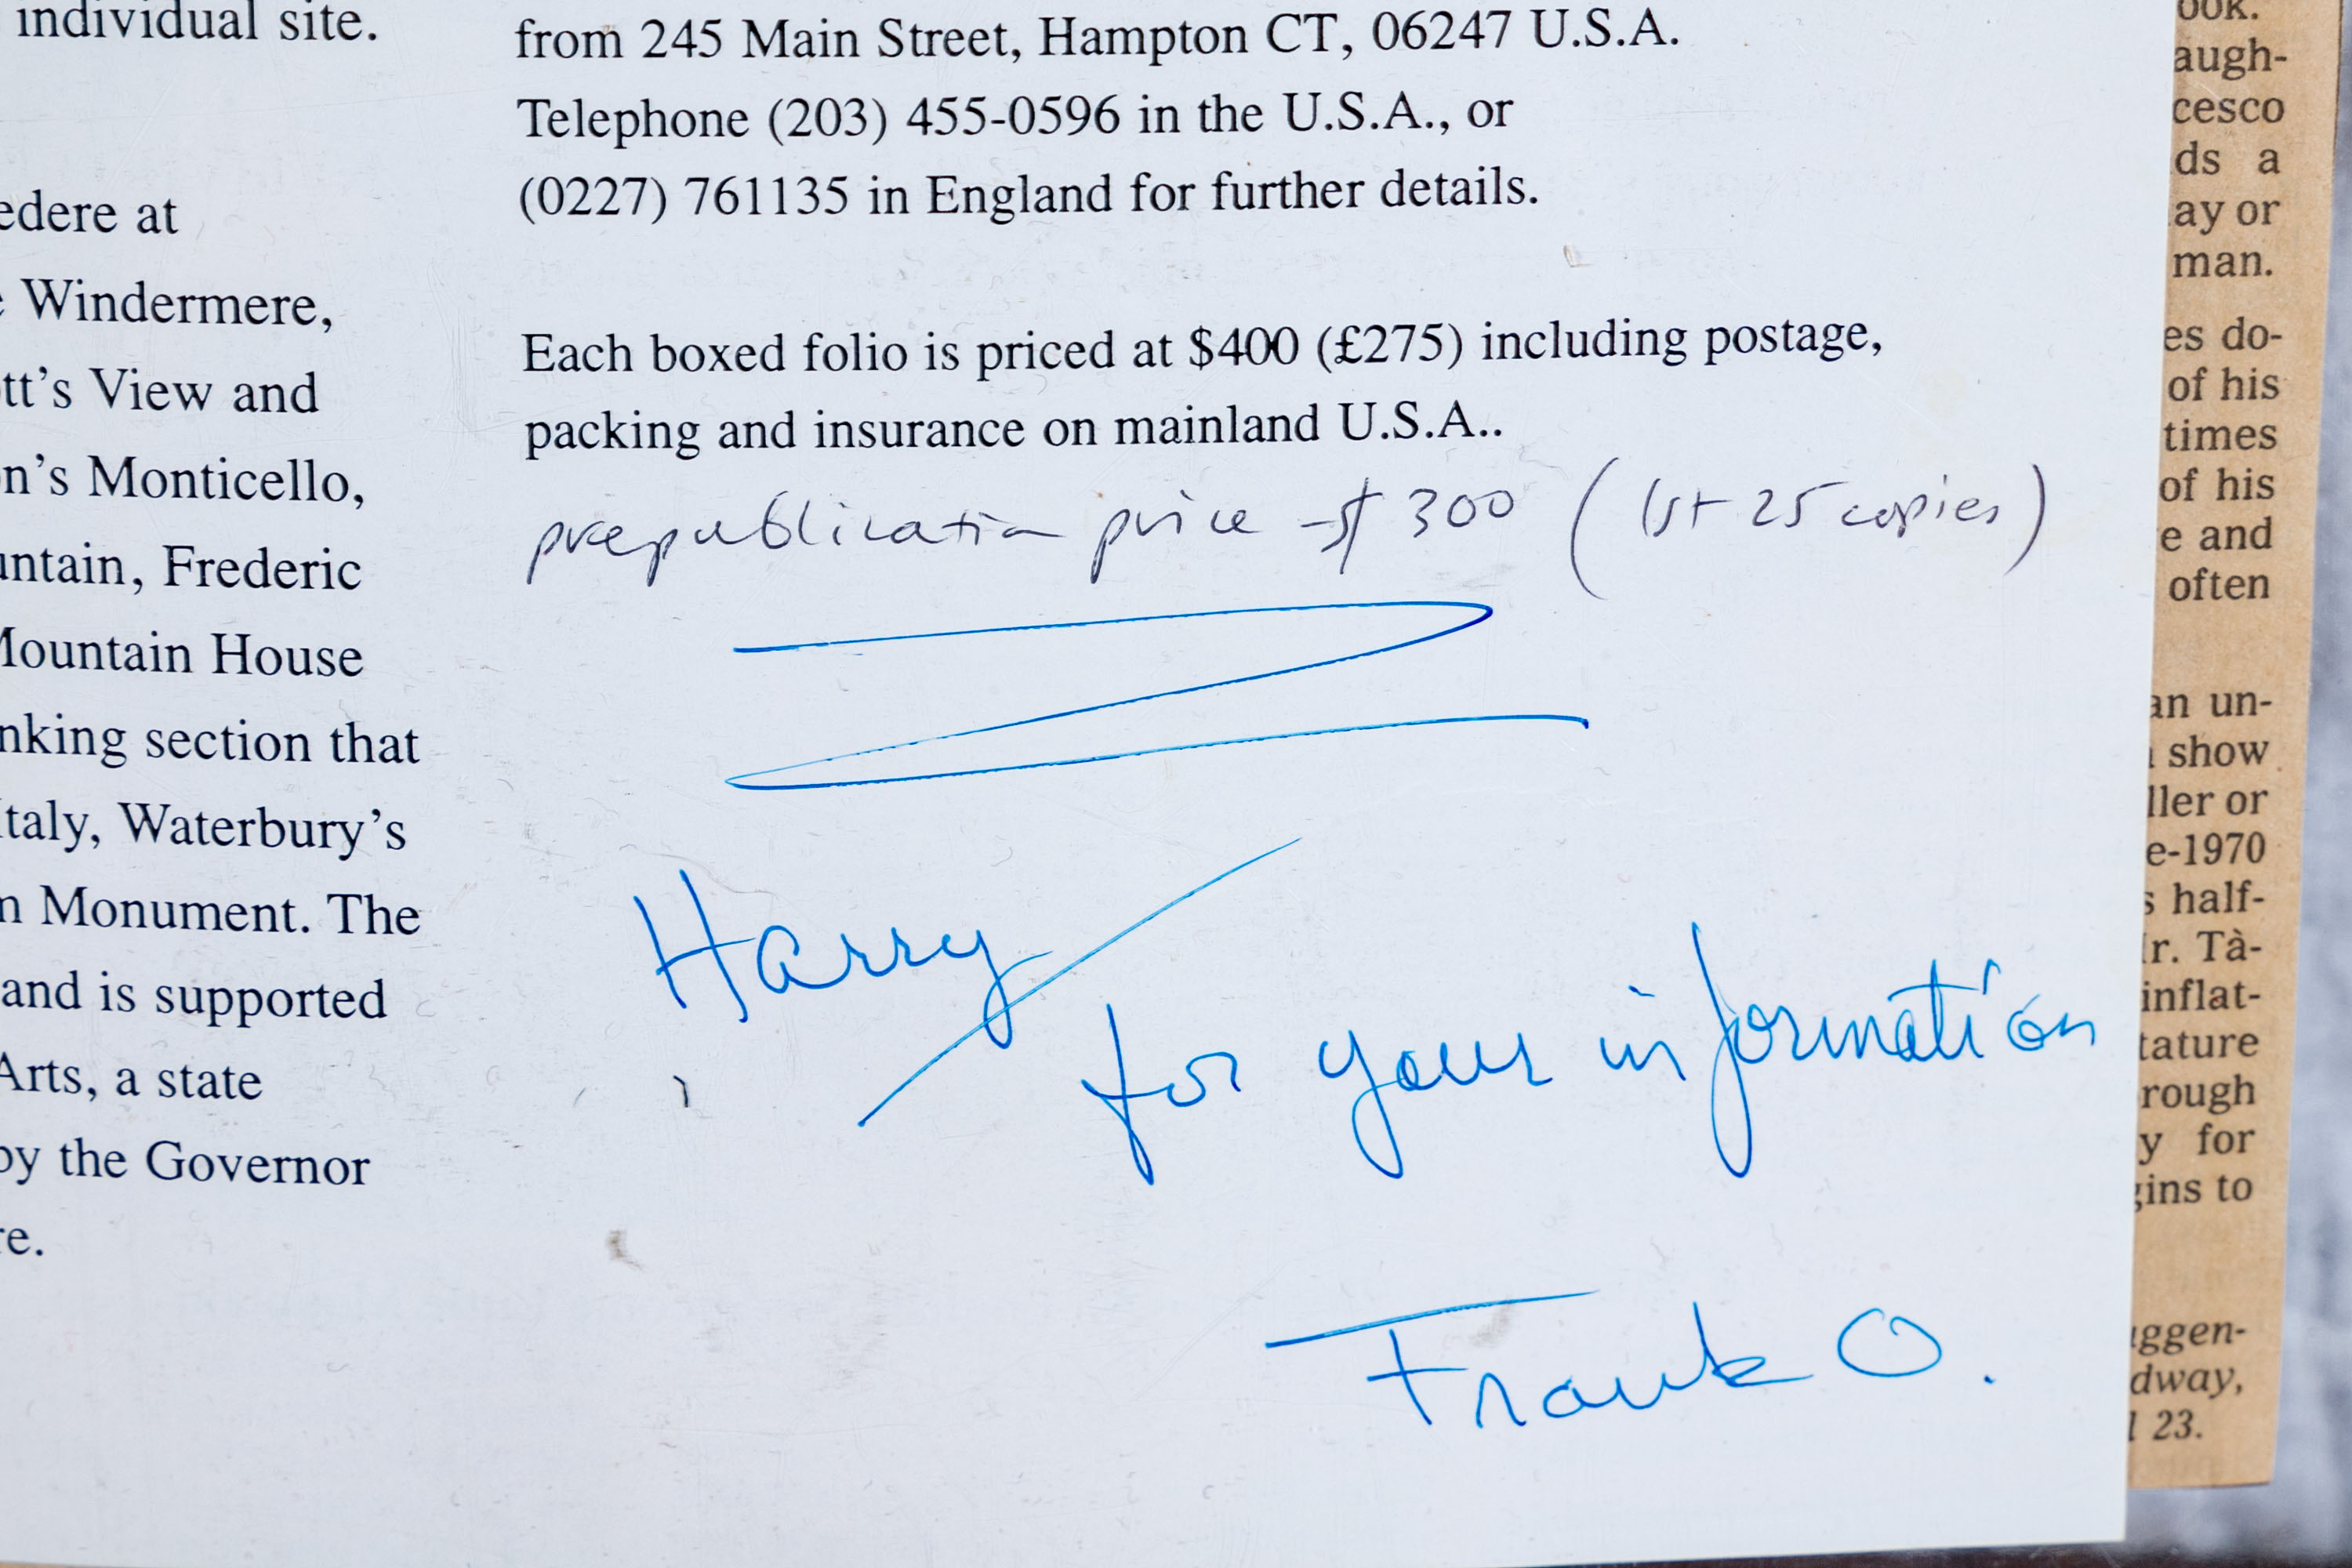 individual site.
edere at
Windermere,
tt's View and
n's Monticello,
untain, Frederic
Mountain House
nking section that
Italy, Waterbury's
n Monument. The
and is supported
Arts, a state
by the Governor
re.
from 245 Main Street, Hampton CT, 06247 U.S.A.
Telephone (203) 455-0596 in the U.S.A., or
(0227) 761135 in England for further details.
Each boxed folio is priced at $400 (£275) including postage,
packing and insurance on mainland U.S.A..
prepublication price $300 (1st 25 copies)
Harry
for your information
Frank O.
ook.
augh-
cesco
ds a
ay or
man.
es do-
of his
times
of his
e and
often
an un-
show
ller or
e-1970
s half-
r. Tà-
inflat-
tature
rough
y for
gins to
uggen-
dway,
23.